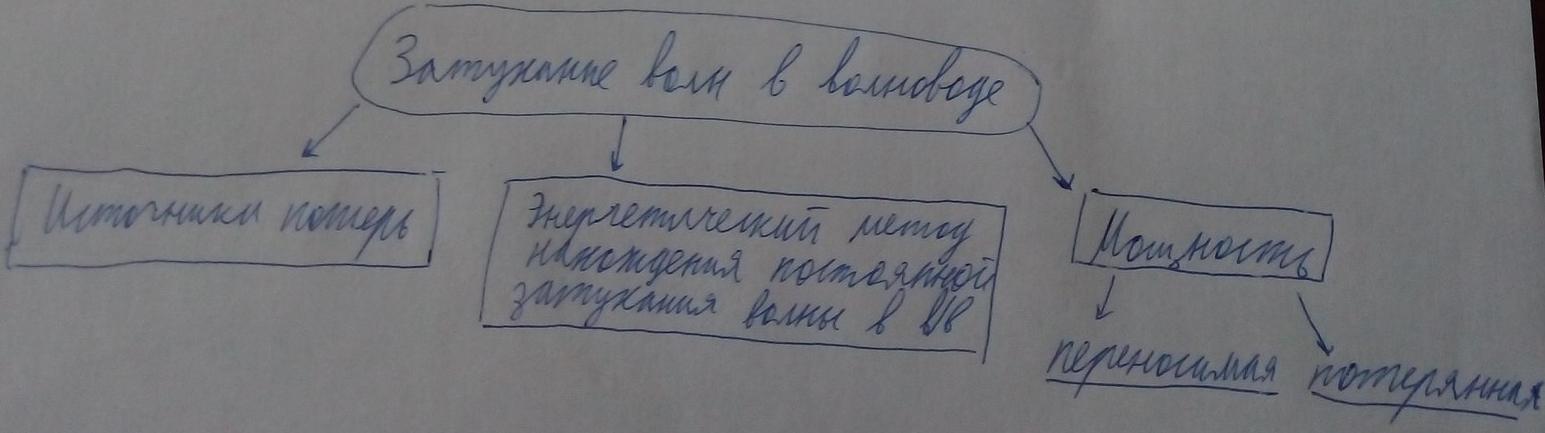 Затухание волн в волноводе
Источники потерь
Энергетический метод
нахождения постоянной
затухания волны в в/в
Мощность
переносимая
потерянная